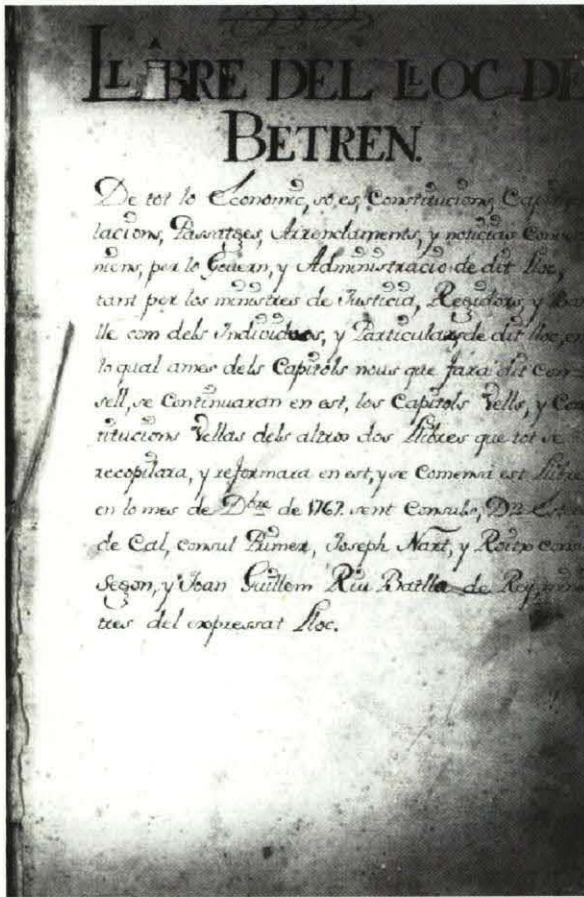 LLIBRE DEL LLOC DE
BETREN.
De tot lo Economic, so es, Constitucions, Capitu
lacions, Passatges, Arrendaments, y noticias Conve
niens, per lo Govern, y Administracio de dit lloc,
tant per los ministres de Justicia, Regidors, y Bat
lle com dels Individuos, y Particulars de dit lloc, en
lo qual ames dels Capitols nous que fara dit con
sell, se Continuaran en est, los Capitols Vells, y Con
titucions Vellas dels altros dos Llibres que tot se
recopilara, y reformara en est, y se Comensa est Llibre
en lo mes de Dbre de 1767. sent Consuls,
de Cal, consul Primer, Joseph Nart, y consul
Segon, y Joan Guillem Riu Batlle de Rey, minis
tres del expressat Lloc.